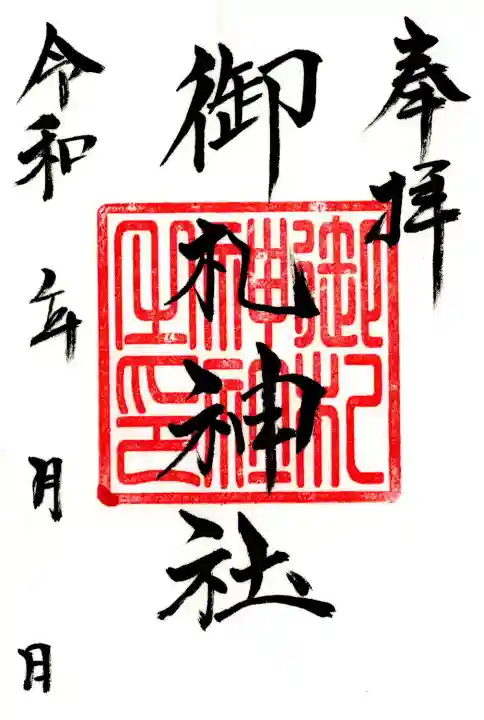 奉拝
御札神社
令和 年 月 月